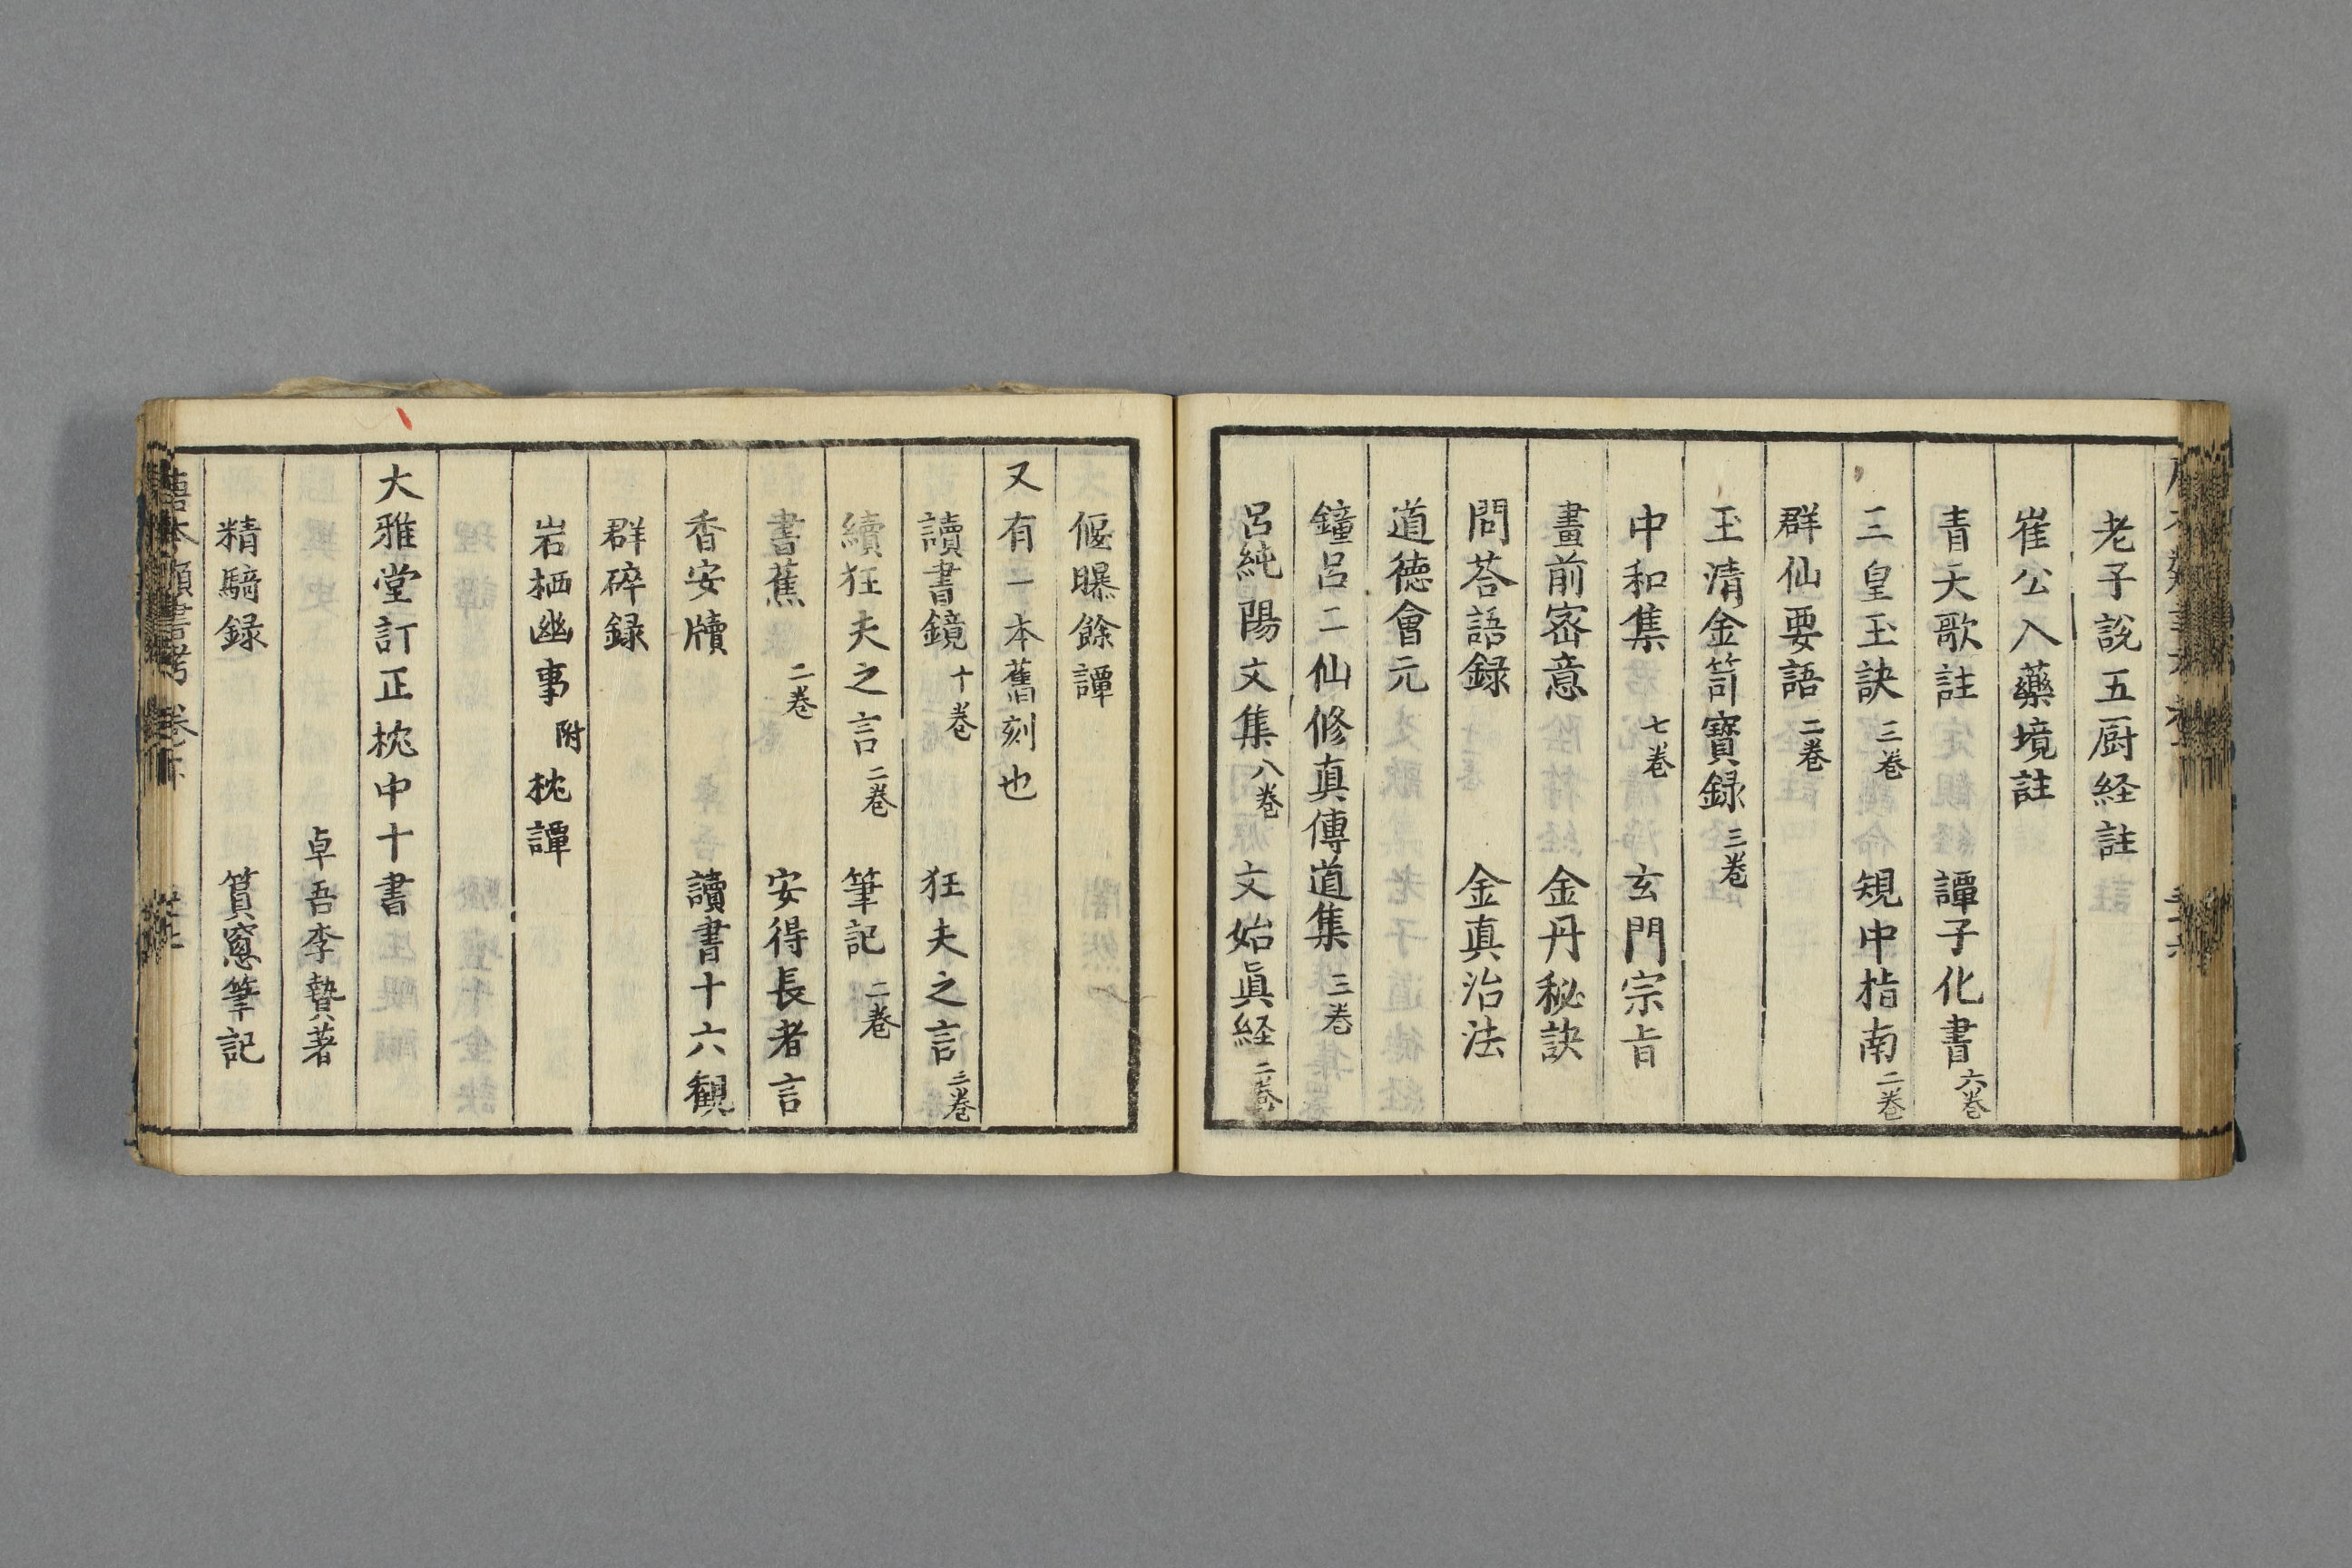 老子説五厨経註
崔公入藥境註
青天歌註 譚子化書六巻
三皇玉訣三巻 規中指南二巻
群仙要語二巻
玉清金笥寶録三巻
中和集七巻 玄門宗旨
畫前宻意 金丹秘訣
問荅語録 金眞治法
道徳會元
鐘呂二仙修眞傳道集三巻
呂純陽文集八巻 文始眞経二巻
偃曝餘譚
又有一本舊刻也
讀書鏡十巻 狂夫之言三巻
續狂夫之言二巻 筆記二巻
書蕉二巻 安得長者言
香安牘 讀書十六観
群碎録
岩栖幽事附枕譚
大雅堂訂正枕中十書
卓吾李贄著
精騎録 篔窓筆記
唐本類書考 巻下